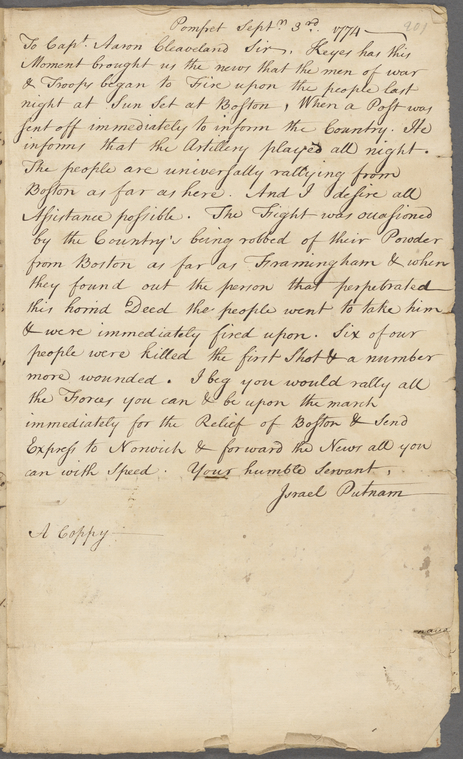 201
Pomfret Septm 3rd. 1774
To Capt. Aaron Cleaveland Sir, Keyes has this
Moment brought us the news that the men of war
& Troops began to Fire upon the people last
night at Sun Set at Boston, When a Post was
sent off immediately to inform the Country. He
informs that the Artillery played all night.
The people are univerfally rallying from
Boston as far as here. And I desire all
Afsistance pofsible. The Fright was occasioned
by the Country's being robbed of their Powder
from Boston as far as Framingham & when
they found out the person that perpetrated
this horrid Deed the people went to take him
& were immediately fired upon. Six of our
people were killed the first Shot & a number
more wounded. I beg you would rally all
the Forces you can & be upon the march
immediately for the Relief of Boston & Send
Express to Norwich & forward the News all you
can with Speed. Your humble Servant,
Israel Putnam
A Coppy